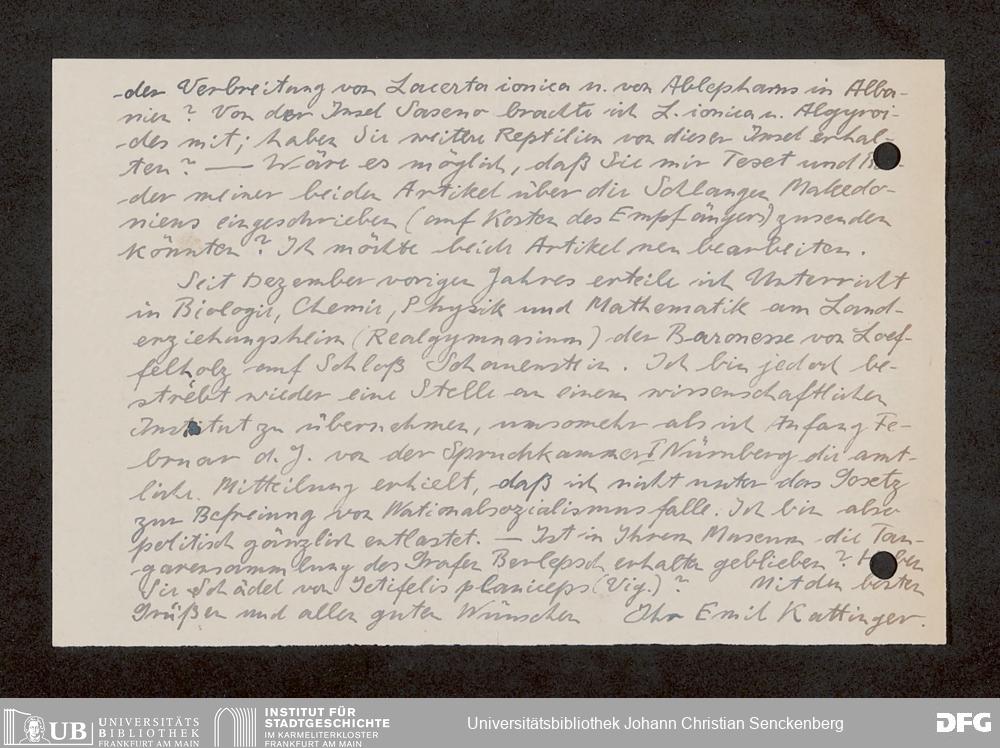 der Verbreitung von Lacerta ionica u. von Ablepharus in Alba-
nien? Von der Insel Saseno brachte ich L. ionica u. Algyroi-
des mit; haben Sie weitere Reptilien von dieser Insel erhal-
ten? — Wäre es möglich, daß Sie mir Teset und
der meiner beiden Artikel über die Schlangen Makedo-
niens eingeschrieben (auf Kosten des Empfängers) zusenden
könnten? Ich möchte beide Artikel neu bearbeiten.
Seit Dezember vorigen Jahres erteile ich Unterricht
in Biologie, Chemie, Physik und Mathematik am Land-
erziehungsheim (Realgymnasium) der Baronesse von Loef-
felholz auf Schloß Schauenstein. Ich bin jedoch be-
strebt wieder eine Stelle an einem wissenschaftlichen
Institut zu übernehmen, umsomehr als ich Anfang Fe-
bruar d. J. von der Spruchkammer I Nürnberg die amt-
liche Mitteilung erhielt, daß ich nicht unter das Gesetz
zur Befreiung von Nationalsozialismus falle. Ich bin also
politisch gänzlich entlastet. — Ist in Ihrem Museum die Tan-
garensammlung des Grafen Berlepsch erhalten geblieben? Haben
Sie Schädel von Ictifelis planiceps (Vig.)? Mit den besten
Grüßen und allen guten Wünschen Ihr Emil Kattinger.
UB UNIVERSITÄTS
BIBLIOTHEK
FRANKFURT AM MAIN
INSTITUT FÜR
STADTGESCHICHTE
IM KARMELITERKLOSTER
FRANKFURT AM MAIN
Universitätsbibliothek Johann Christian Senckenberg
DFG